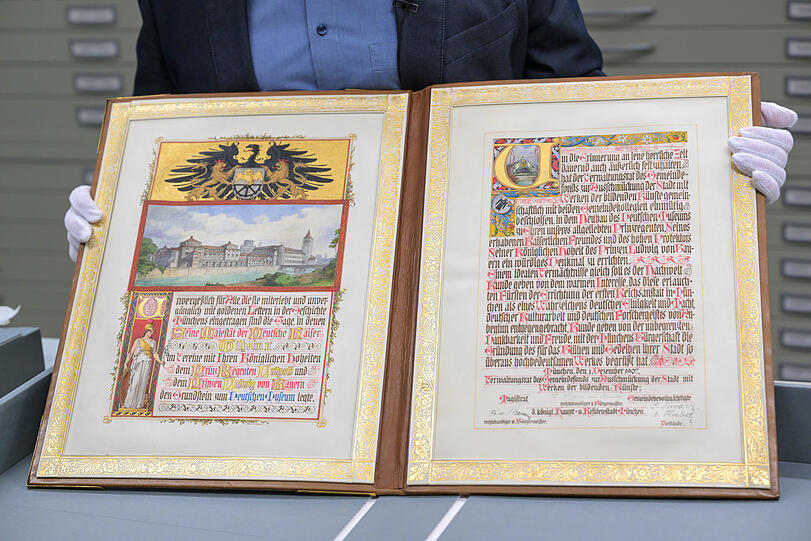 Unvergeßlich für Alle, die sie miterlebt und unver-
gänglich mit goldenen Lettern in der Geschichte
Münchens eingetragen sind die Tage, in denen
Seine Majestät der Deutsche Kaiser
Wilhelm II.
im Vereine mit Ihren Königlichen Hoheiten
dem Prinz Regenten Luitpold und
dem Prinzen Ludwig von Bayern
den Grundstein zum Deutschen Museum legte.
Um die Erinnerung an jene herrliche Zeit
dauernd auch äußerlich fest zuhalten
hat der Verwaltungsrat des Gemeinde-
fonds zur Ausschmückung der Stadt mit
Werken der bildenden Künste gemein-
schaftlich mit beiden Gemeindekollegien einmütig
beschlossen, in dem Neubau des Deutschen Museums
zu Ehren unseres allgeliebten Prinzregenten Seines
erhabenen Kaiserlichen Freundes und des hohen Protektors
Seiner Königlichen Hoheit des Prinzen Ludwig von Bay-
ern ein würdiges Denkmal zu errichten.
Einem idealen Vermächtnisse gleich soll es der Nachwelt
Kunde geben von dem warmen Interesse, das diese erlauch-
ten Fürsten der Errichtung der ersten Reichsanstalt in Mün-
chen als eines Wahrzeichens Deutscher Einigkeit und Macht,
Deutscher Kulturarbeit und Deutschen Forschergeistes von
Anbeginn entgegengebracht Kunde geben von der unbegrenzten
Dankbarkeit und Freude mit der Münchens Bürgerschaft die
Gründung des für das Blühen und Gedeihen ihrer Stadt so
überaus hochbedeutsamen Werkes begrüßt hat.
München, den 1. Dezember 1907.
Verwaltungsrat des Gemeindefonds zur Ausschmückung der Stadt mit
Werken der bildenden Künste:
Magistrat
Gemeindebevollmächtigte
d. königl. Haupt- u. Residenzstadt München.
rechtskundiger II. Bürgermeister.
Vorstände.